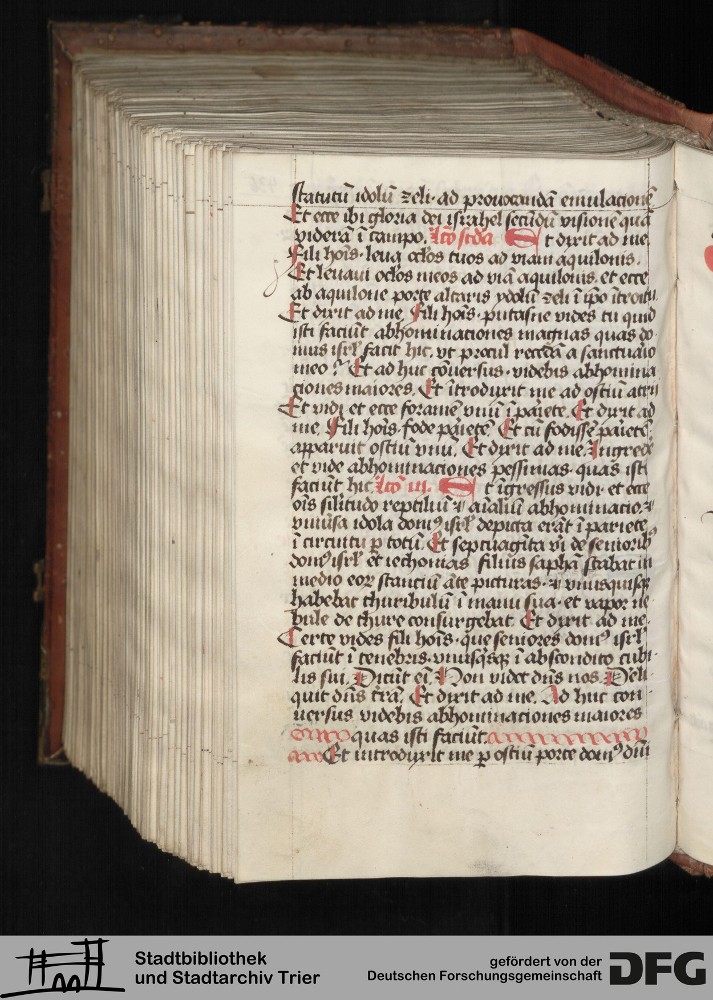 statutū idolū zeli· ad prouocandā emulacionē
Et ecce ibi gloria dei israhel secūdū visionē quā
viderā ī campo. lc̄o scd̄a Et dixit ad me.
Fili hoīs· leua oc̄los tuos ad viam aquilonis.
Et leuaui oc̄los meos ad viā aquilonis· et ecce
ab aquilone porte altaris ydolū zeli ī ip̄o ītroitu
Et dixit ad me. Fili hoīs· putasne vides tu quid
isti faciūt abhominaciones magnas quas do
mus isrl̄ facit hic. vt procul recedā a sanctuario
meo? Et ad huc cōuersus· videbis abhomina
ciones maiores. Et ītroduxit me ad ostiū atrij
Et vidi et ecce foramē vnū ī pariete. Et dixit ad
me. Fili hoīs· fode parietē Et cū fodissē parietē·
apparuit ostiū vnū. Et dixit ad me. Ingrede
et vide abhominaciones pessimas· quas isti
faciūt hic. lc̄o iij. Et īgressus vidi· et ecce
oīs silitudo reptiliū ⁊ aīaliū abhominacio· ⁊
vniūsa idola domꝰ isrl̄ depicta erāt ī pariete
ī circuitu ꝑ totū. Et septuagīta viri de seniorib⁹
domꝰ isrl̄ et iechonias filius saphā stabat in
medio eoꝝ stanciū āte picturas· ⁊ vnusquisqꝫ
habebat thuribulū ī manu sua· et vapor ne
bule de thure consurgebat. Et dixit ad me·
Certe vides fili hoīs· que seniores domꝰ isrl̄
faciūt ī tenebris· vnusq̄sqꝫ ī abscondito cubi
lis sui. Dicūt eī. Non videt dn̄s nos. Deli
quit dn̄s terā. Et dixit ad me. Ad huc con
uersus videbis abhominaciones maiores
quas isti faciūt
Et introduxit me ꝑ ostiū porte domꝰ dn̄i
Stadtbibliothek
und Stadtarchiv Trier
gefördert von der
Deutschen Forschungsgemeinschaft
DFG